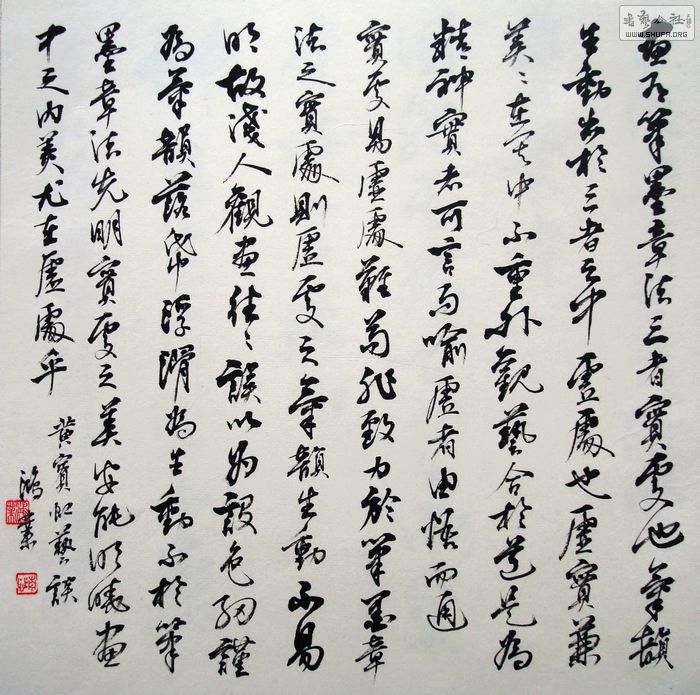 書藝公社
WWW.SHUFA.ORG
畫有筆墨章法三者實處也氣韻
生動出於三者之中虛處也虛實兼
美〻在其中不重外觀藝合於道是為
精神實者可言而喻虛者由悟而通
實處易虛處難苟非致力於筆墨章
法之實處則虛處之氣韻生動不易
明故淺人觀畫往〻誤以為設色細謹
為氣韻落帋浮滑為生動不於筆
墨章法先明實處之美安能明曉畫
中之內美尤在虛處乎
黃賓虹藝談
鴻業